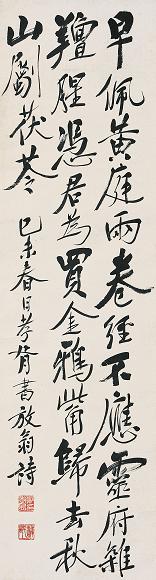 早佩黃庭兩卷經不應靈府雜
羶腥憑君為買金鴉觜歸去秋
山劚茯苓
己未春日孝胥書放翁詩